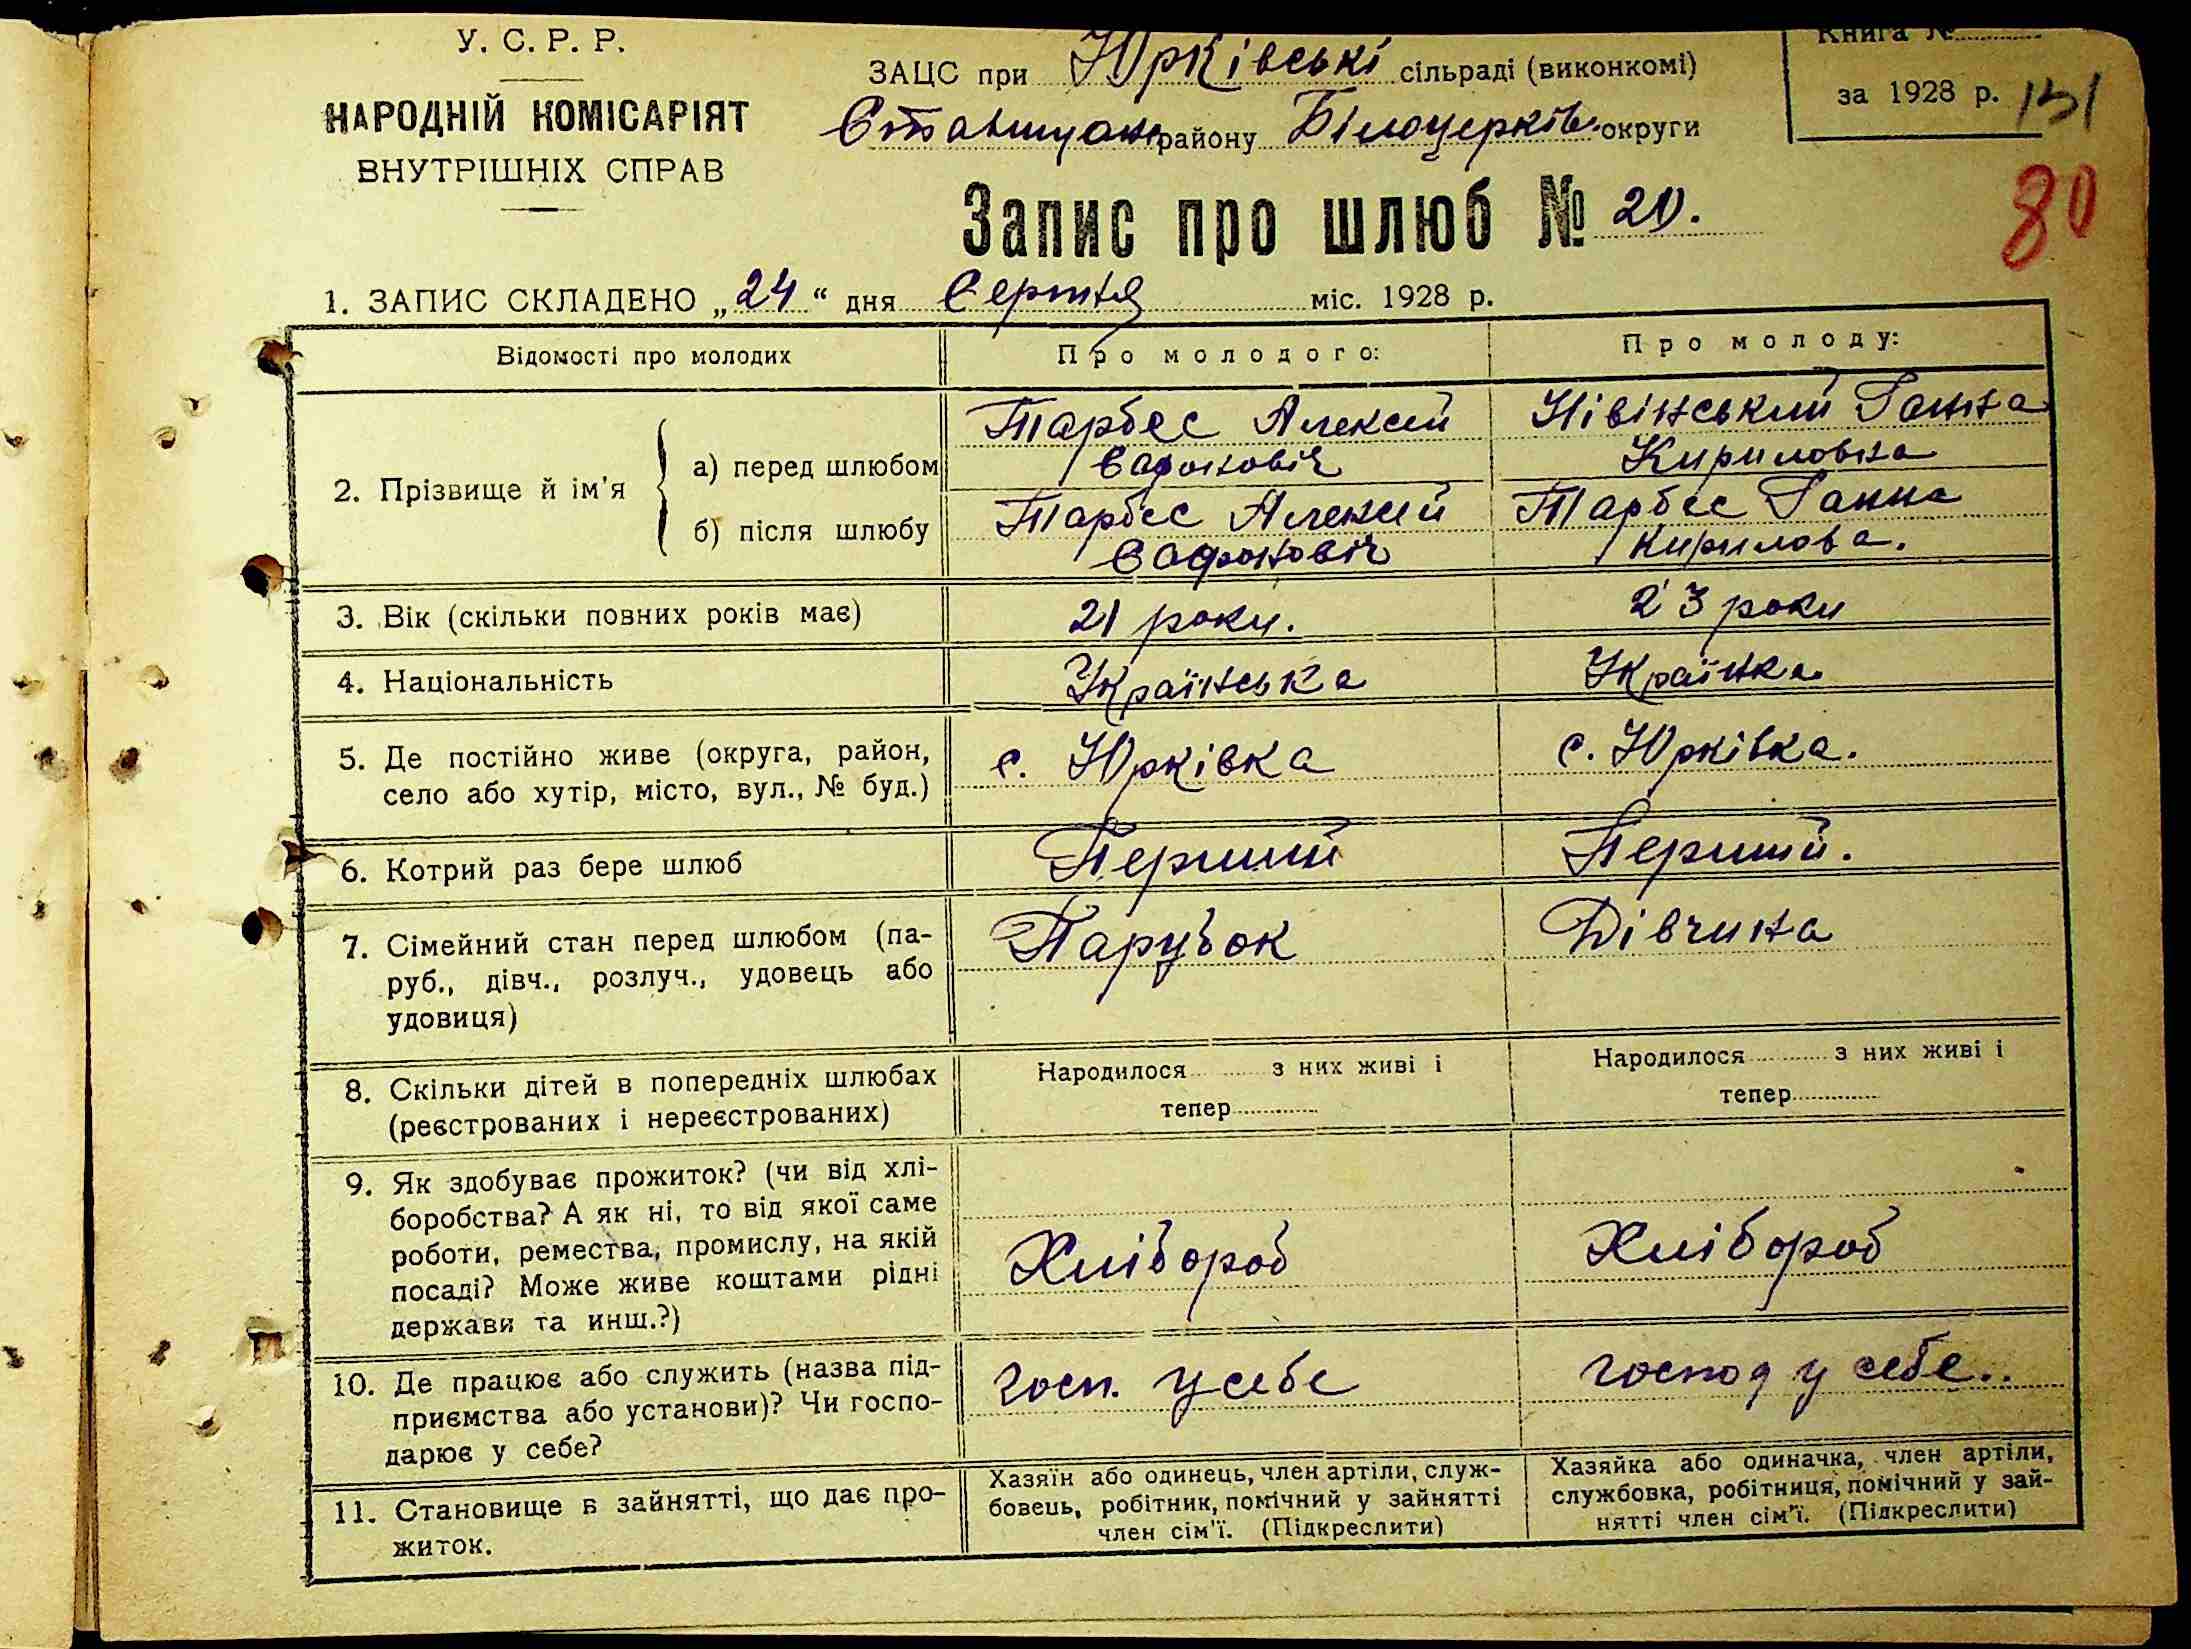 У. С. Р. Р.
НАРОДНІЙ КОМІСАРІЯТ
ВНУТРІШНІХ СПРАВ
ЗАЦС при Юрківські сільраді (виконкомі)
району Білоцерків. округи
Книга №
за 1928 р. 151
80
Запис про шлюб № 20.
1. ЗАПИС СКЛАДЕНО „24“ дня Серпня міс. 1928 р.
Відомості про молодих
Про молодого:
Про молоду:
2. Прізвище й ім'я
а) перед шлюбом
Тарбес Алексей
Сафонович
Нівінський Ганна
Кириловна
б) після шлюбу
Тарбес Алексий
Сафоновіч
Тарбес Ганна
Кирилова.
3. Вік (скільки повних років має)
21 роки.
23 роки
4. Національність
Українська
Українка
5. Де постійно живе (округа, район,
село або хутір, місто, вул., № буд.)
с. Юрківка
с. Юрківка.
6. Котрий раз бере шлюб
Перший
Перший.
7. Сімейний стан перед шлюбом (па-
руб., дівч., розлуч., удовець або
удовиця)
Парубок
Дівчина
8. Скільки дітей в попередніх шлюбах
(реєстрованих і нереєстрованих)
Народилося з них живі і
тепер
Народилося з них живі і
тепер
9. Як здобуває прожиток? (чи від хлі-
боробства? А як ні, то від якої саме
роботи, ремества, промислу, на якій
посаді? Може живе коштами рідні
держави та инш.?)
Хлібороб
Хлібороб
10. Де працює або служить (назва під-
приємства або установи)? Чи госпо-
дарює у себе?
госп. у себе
господ у себе..
11. Становище в зайнятті, що дає про-
житок.
Хазяїн або одинець, член артіли, служ-
бовець, робітник, помічний у зайнятті
член сім'ї. (Підкреслити)
Хазяйка або одиначка, член артіли,
службовка, робітниця, помічний у зай-
нятті член сім'ї. (Підкреслити)